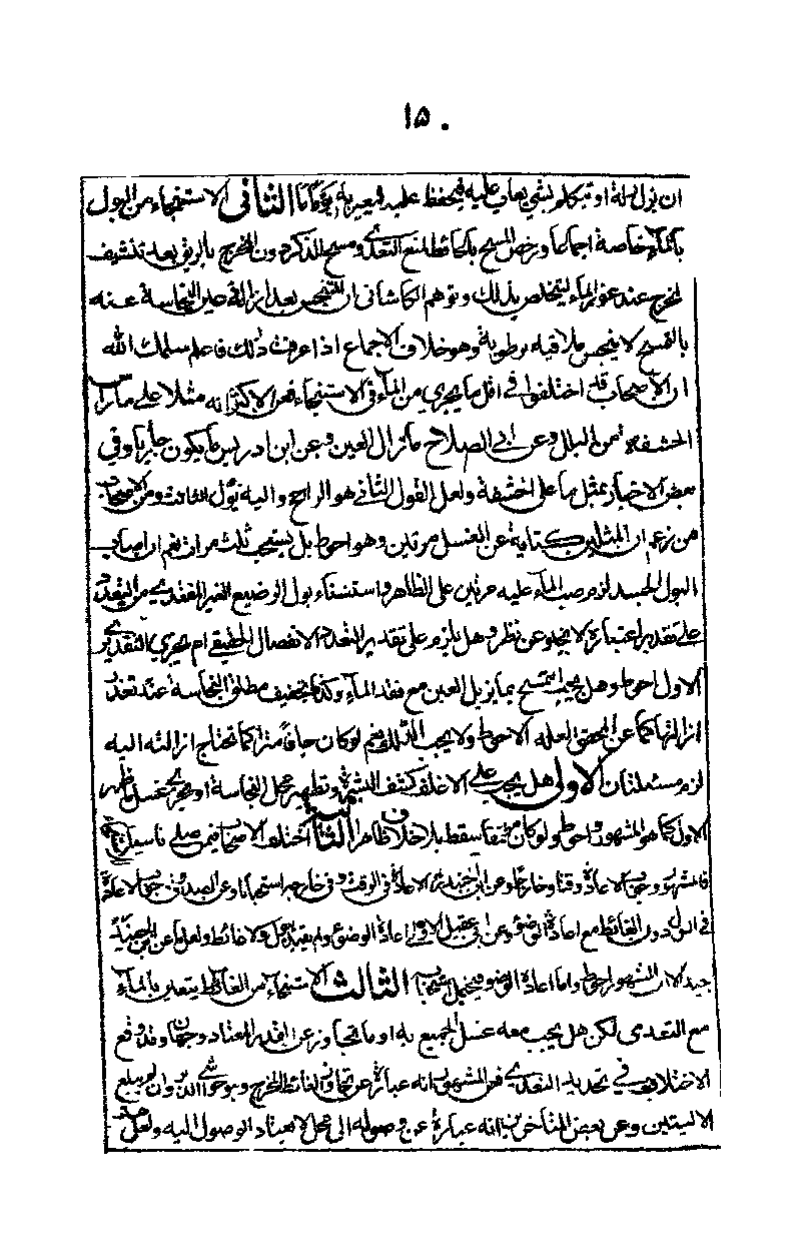 ۱۵۰
ان يزل لسانه او يتكلم بشئ يعاب عليه فيحفظ عليه فيعير به يوما ما الثانى الاستنجاء من البول
بالماء خاصة اجماعا ورخص المسح بالحائط لمنع التعدى ومسح الذكر دون المخرج بالريق بعد تنشيف
المخرج عند عوز الماء ليتخلص بذلك وتوهم الكاشانى ان المتنجس بعد ازالة عين النجاسة عنه
بالمسح لا ينجس ملاقيه برطوبة وهو خلاف الاجماع اذا عرفت ذلك فاعلم سلمك الله
ان الاصحاب قد اختلفوا فى اقل ما يجرى من الماء فى الاستنجاء فعن الاكثر انه مثلا على ما راب
الحشفة من البلل وعن ابى الصلاح ما ازال العين وعن ابن ادريس ما يكون جاريا وفى
بعض الاخبار بمثل ما على الحشفة ولعل القول الثانى هو الراجح واليه يؤل الثالث ومن الاصحاب
من زعم ان المثلين كناية عن الغسل مرتين وهو احوط بل يستحب ثلث مرات نعم ان اصاب
البول الجسد لزم صب الماء عليه مرتين على الظاهر واستثناء بول الرضيع الغير المغتذى من التعدد
على تقدير اعتباره لا يخلو عن نظر وهل يلزم على تقدير التعدد الانفصال الحقيقى ام يجزى التقديرى
الاول احوط وهل يجب المسح بما يزيل العين مع فقد الماء وكذا تخفيف مطلق النجاسة عند تعذر
ازالتها كما عن المحقق العلامة الاحوط ولا يجب الدلك نعم لو كان جافا متراكما تحتاج ازالته اليه
لزم مسئلتان الاولى هل يجب على الاغلف كشف البشرة وتطهير محل النجاسة او يجزى غسل ما ظهر
الاول كما هو المشهور احوط ولو كان مرتتقا سقط بلا خلاف ظاهرا الثانية اختلف الاصحاب فيمن صلى ناسيا
فالمشهور وجوب الاعادة وقتا وخارجا وعن ابن الجنيد الاعادة فى الوقت وفى خارجه استحبابا وعن الصدوق وجوب الاعادة
فى البول دون الغائط مع اعادة الوضوء وعن ابن عقيل الاولى اعادة الوضوء ولم يقيد ببول ولا غائط ولعل ما عن ابن الجنيد
جيد الا ان المشهور احوط واما اعادة الوضوء فيحمل استحبابا الثالث الاستنجاء من الغائط يتعين بالماء
مع التعدى لكن هل يجب معه غسل الجميع به او ما تجاوز عن القدر المعتاد وجهان وقد وقع
الاختلاف فى تحديد التعدى فعن المشهور انه عبارة عن تجاوز الغائط المخرج وهو حواشى الدبر وان لم يبلغ
الاليتين وعن بعض المتأخرين انه عبارة عن وصوله الى محل لا يعتاد الوصول اليه ولعل